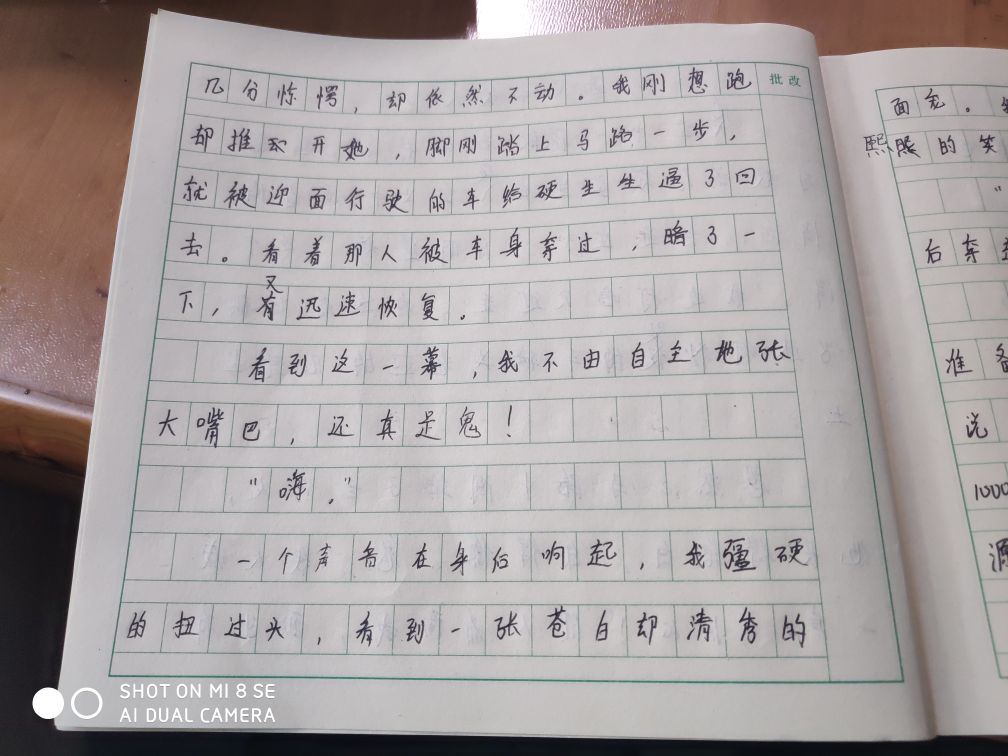 几分惊愕，却依然不动。我刚想跑
批改
却推开她，脚刚踏上马路一步，
就被迎面行驶的车给硬生生逼了回
去。看着那人被车身穿过，暗了一
下，又有迅速恢复。
看到这一幕，我不由自主地张
大嘴巴，还真是鬼！
“嗨。”
一个声音在身后响起，我疆硬
的扭过头，看到一张苍白却清秀的
面容。
熙熙的笑
“
后弃
准备
说
1000
源
SHOT ON MI 8 SE
AI DUAL CAMERA